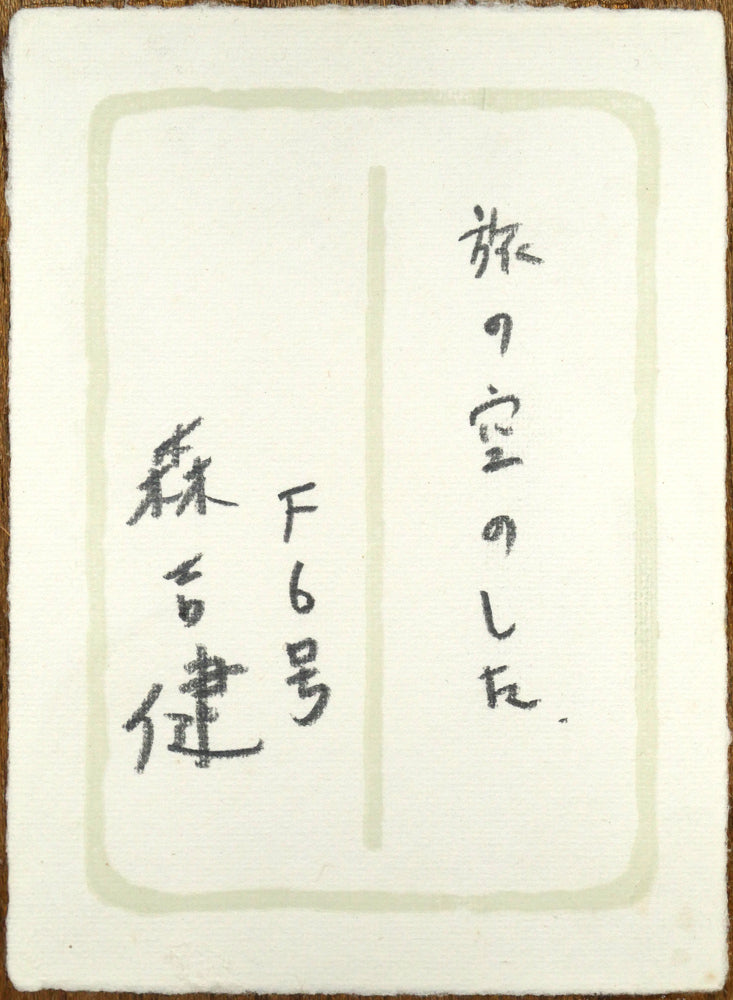 旅の空のした.
F6号
森吉健